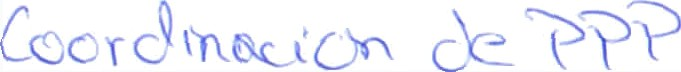 Coordinacion de PPP